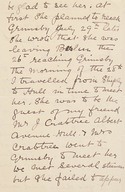 be glad to see her, at
first she planned to reach
Grimsby July 29th Feb
she wrote that she was
leaving Berlin the
26th reaching Grimsby
the morning of the 28th
I travelled from
to Hull in time to meet
her. She was to be the
guest of my friend
Mrs J. Crabtree Albert
Avenue Hull & Mrs
Crabtree went to
Grimsby to meet her
we met several steamers
but she failed to appear